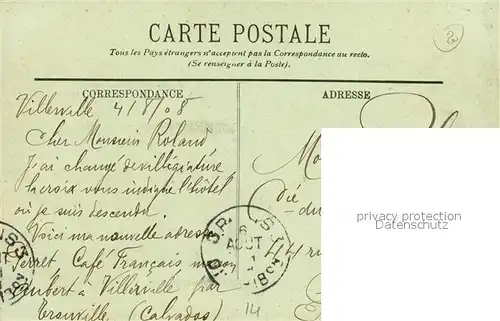 CARTE POSTALE
Tous les Pays étrangers n'acceptent pas la Correspondance au recto.
(Se renseigner à la Poste).
2
CORRESPONDANCE
ADRESSE
Villerville 4/8/08
Cher Monsieur Roland
J'ai changé de villégiature
la croix vous indique l'hôtel
où je suis descendu.
Voici ma nouvelle adresse
Perret Café Français maison
à Villerville par
Trouville (Calvados)
6
AOUT
14
privacy protection watermark